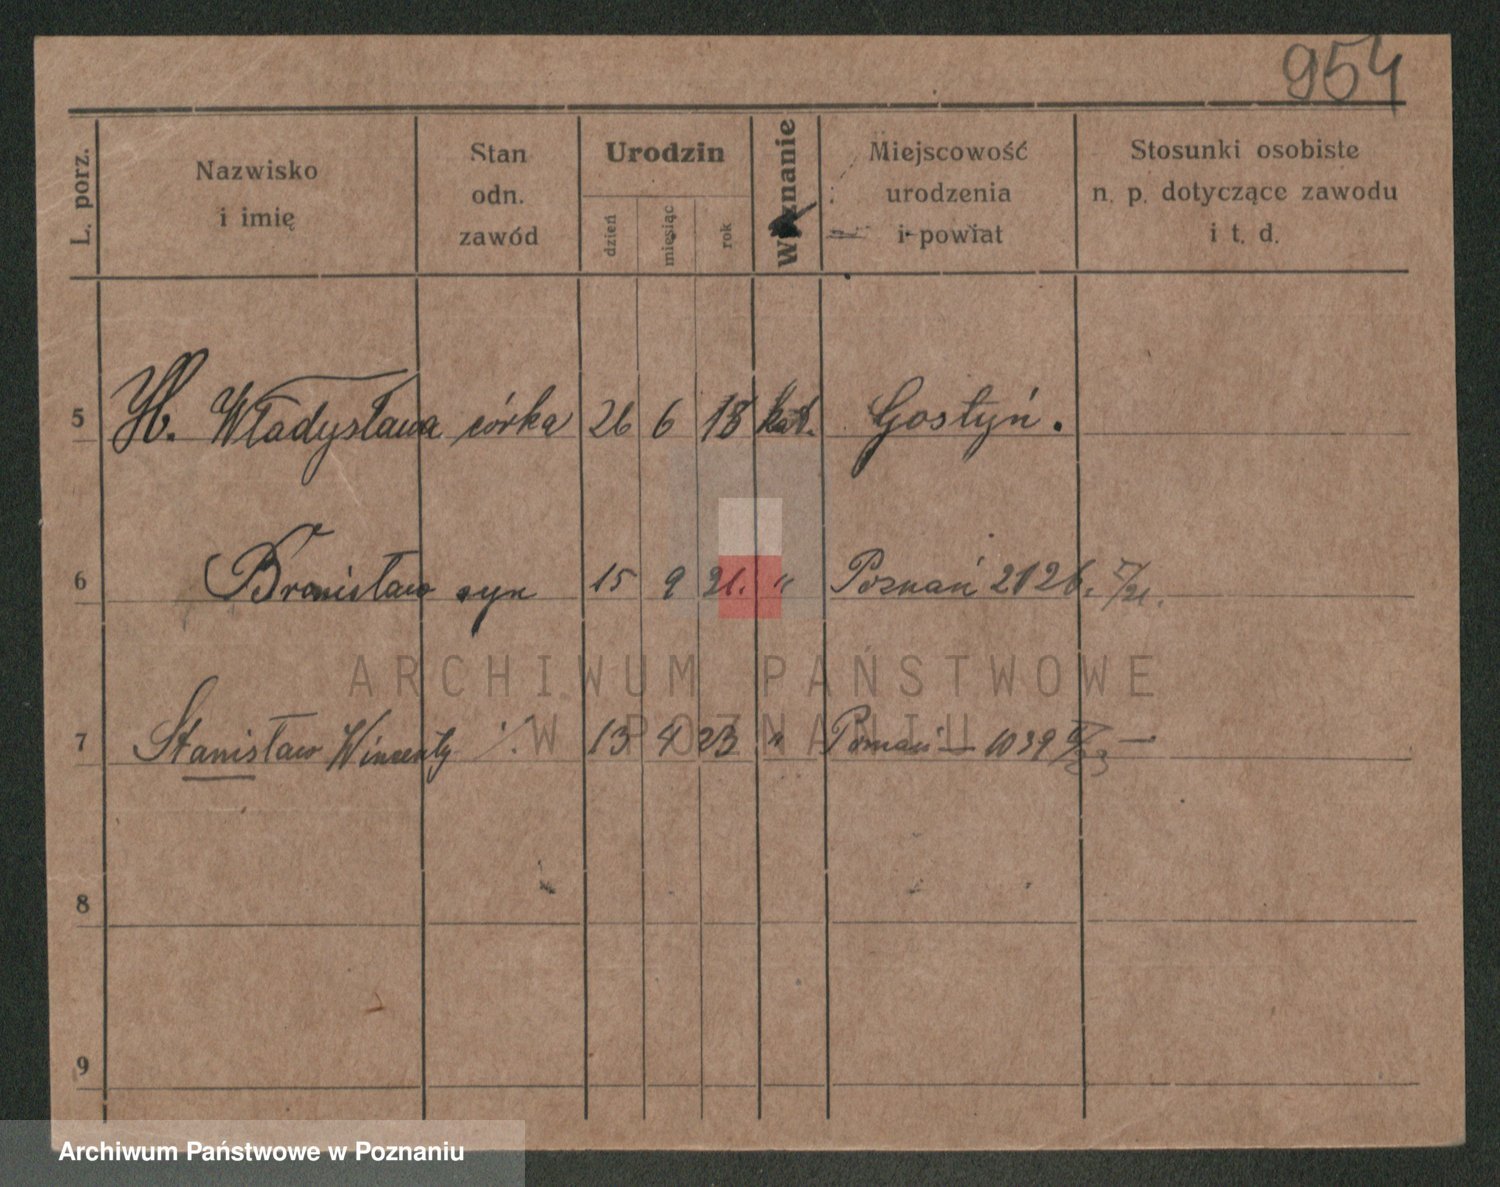 954
L. porz.
Nazwisko
i imię
Stan
odn.
zawód
Urodzin
dzień
miesiąc
rok
Wyznanie
Miejscowość
urodzenia
i powiat
Stosunki osobiste
n. p. dotyczące zawodu
i t. d.
5 Władysława córka 26 6 18 kat. Gostyń.
6 Bronisław syn 15 9 21. " Poznań 2126. /21.
ARCHIWUM PAŃSTWOWE
W POZNANIU
7 Stanisław Wincenty 13 4 23 " Poznań — 1039 /23 —
8
9
Archiwum Państwowe w Poznaniu